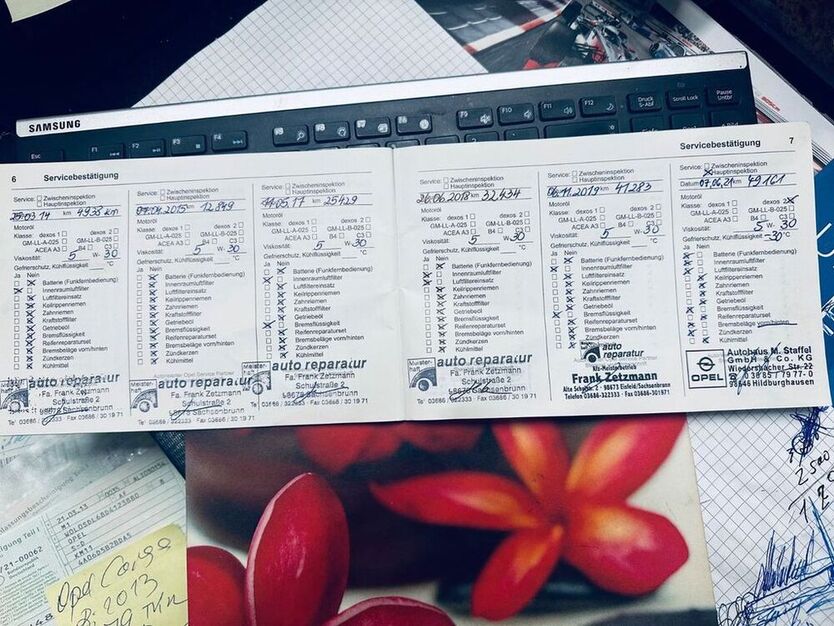 SAMSUNG
Esc
F1
F2
F3
F4
F5
F6
F7
F8
F9
F10
F11
F12
Druck
S-Abf
Scroll Lock
Pause
Untbr
6 Servicebestätigung
Service: Zwischeninspektion
Hauptinspektion
km 4938 km
Motoröl
Klasse: dexos 1 dexos 2
GM-LL-A-025 GM-LL-B-025
ACEA A3 B4 C3
Viskosität: 5 W- 30
Gefrierschutz, Kühlflüssigkeit °C
Ja Nein
Batterie (Funkfernbedienung)
Innenraumluftfilter
Luftfiltereinsatz
Keilrippenriemen
Zahnriemen
Kraftstofffilter
Getriebeöl
Bremsflüssigkeit
Reifenreparaturset
Bremsbeläge vorn/hinten
Zündkerzen
Kühlmittel
auto reparatur
Fa. Frank Zetzmann
Schulstraße 2
Service: Zwischeninspektion
Hauptinspektion
2015 km 12.849
Motoröl
Klasse: dexos 1 dexos 2
GM-LL-A-025 GM-LL-B-025
ACEA A3 B4 C3
Viskosität: 5 W- 30
Gefrierschutz, Kühlflüssigkeit °C
Ja Nein
Batterie (Funkfernbedienung)
Innenraumluftfilter
Luftfiltereinsatz
Keilrippenriemen
Zahnriemen
Kraftstofffilter
Getriebeöl
Bremsflüssigkeit
Reifenreparaturset
Bremsbeläge vorn/hinten
Zündkerzen
Kühlmittel
auto reparatur
Fa. Frank Zetzmann
Schulstraße 2
Sachsenbrunn
Service: Zwischeninspektion
Hauptinspektion
05.17 km 25429
Motoröl
Klasse: dexos 1 dexos 2
GM-LL-A-025 GM-LL-B-025
ACEA A3 B4 C3
Viskosität: 5 W- 30
Gefrierschutz, Kühlflüssigkeit °C
Ja Nein
Batterie (Funkfernbedienung)
Innenraumluftfilter
Luftfiltereinsatz
Keilrippenriemen
Zahnriemen
Kraftstofffilter
Getriebeöl
Bremsflüssigkeit
Reifenreparaturset
Bremsbeläge vorn/hinten
Zündkerzen
Kühlmittel
auto reparatur
Fa. Frank Zetzmann
Schulstraße 2
Sachsenbrunn
Servicebestätigung 7
Service: Zwischeninspektion
Hauptinspektion
26.06.2018 km 32.434
Motoröl
Klasse: dexos 1 dexos 2
GM-LL-A-025 GM-LL-B-025
ACEA A3 B4 C3
Viskosität: 5 W- 30
Gefrierschutz, Kühlflüssigkeit °C
Ja Nein
Batterie (Funkfernbedienung)
Innenraumluftfilter
Luftfiltereinsatz
Keilrippenriemen
Zahnriemen
Kraftstofffilter
Getriebeöl
Bremsflüssigkeit
Reifenreparaturset
Bremsbeläge vorn/hinten
Zündkerzen
Kühlmittel
auto reparatur
Fa. Frank Zetzmann
Schulstraße 2
Sachsenbrunn
Service: Zwischeninspektion
Hauptinspektion
06.11.2019 km 41283
Motoröl
Klasse: dexos 1 dexos 2
GM-LL-A-025 GM-LL-B-025
ACEA A3 B4 C3
Viskosität: 5 W- 30
Gefrierschutz, Kühlflüssigkeit °C
Ja Nein
Batterie (Funkfernbedienung)
Innenraumluftfilter
Luftfiltereinsatz
Keilrippenriemen
Zahnriemen
Kraftstofffilter
Getriebeöl
Bremsflüssigkeit
Reifenreparaturset
Bremsbeläge vorn/hinten
Zündkerzen
Kühlmittel
auto
reparatur
Kfz-Meisterbetrieb
Frank Zetzmann
Telefon 03686-322333 · Fax 03686-301971
Service: Zwischeninspektion
Hauptinspektion
Datum 07.06.21 km 49161
Motoröl
Klasse: dexos 1 dexos 2
GM-LL-A-025 GM-LL-B-025
ACEA A3 B4 C3
Viskosität: 5 W- 30
Gefrierschutz, Kühlflüssigkeit -30 °C
Ja Nein
Batterie (Funkfernbedienung)
Innenraumluftfilter
Luftfiltereinsatz
Keilrippenriemen
Zahnriemen
Kraftstofffilter
Getriebeöl
Bremsflüssigkeit
Reifenreparaturset
Bremsbeläge vorn/hinten
Zündkerzen
Kühlmittel
OPEL
Autohaus M. Staffel
GmbH & Co. KG
Wiedersbacher Str. 22
98646 Hildburghausen
21.03.13
M1
OPEL
S-D
KM11
Opel Corsa
2013